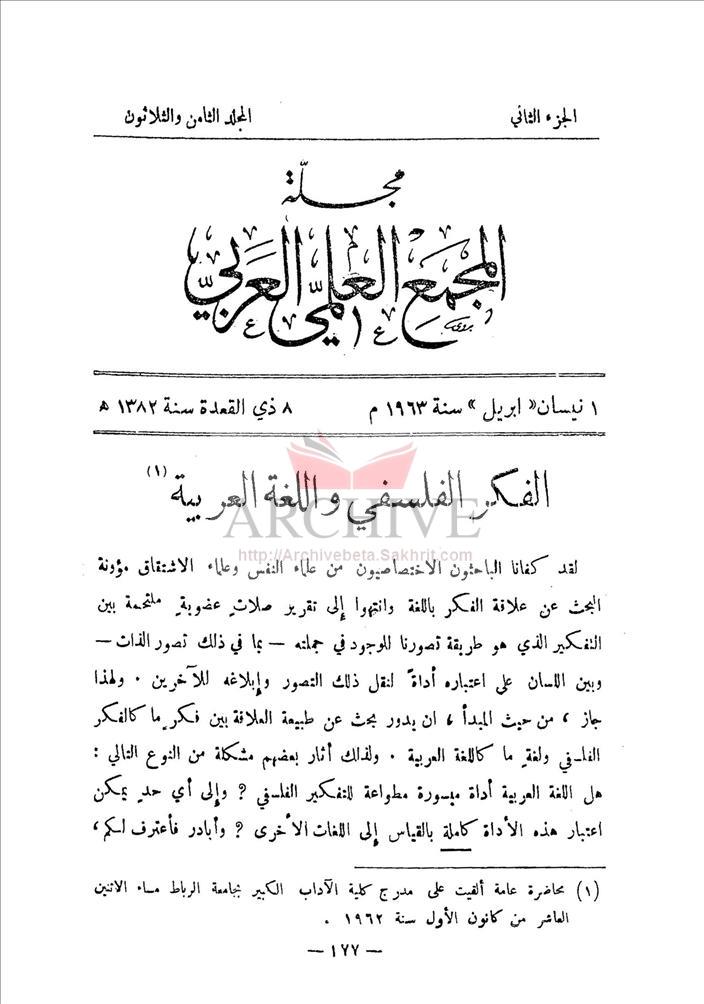 الجزء الثاني المجلد الثامن والثلاثون
مجلّة
المجمع العلمي العربي
١ نيسان « ابريل » سنة ١٩٦٣ م ٨ ذي القعدة سنة ١٣٨٢ هـ
الفكر الفلسفي واللغة العربية (١)
ARCHIVE
http://Archivebeta.Sakhrit.com
لقد كفانا الباحثون الاختصاصيون من علماء النفس وعلماء الاشتقاق مؤونة
البحث عن علاقة الفكر باللغة وانتهوا إلى تقرير صلاتٍ عضويةٍ ملتحمة بين
التفكير الذي هو طريقة تصورنا للوجود في جملته – بما في ذلك تصور الذات –
وبين اللسان على اعتباره أداةً لنقل ذلك التصور وإبلاغه للآخرين . ولهذا
جاز ، من حيث المبدأ ، ان يدور بحث عن طبيعة العلاقة بين فكرٍ ما كالفكر
الفلسفي ولغةٍ ما كاللغة العربية . ولذلك أثار بعضهم مشكلة من النوع التالي :
هل اللغة العربية أداة ميسورة مطواعة للتفكير الفلسفي ؟ وإلى أي حدٍ يمكن
اعتبار هذه الأداة كاملة بالقياس إلى اللغات الأخرى ؟ وأبادر فأعترف لكم ،
(١) محاضرة عامة ألقيت على مدرج كلية الآداب الكبير بجامعة الرباط مساء الاثنين
العاشر من كانون الأول سنة ١٩٦٢ .
– ١٧٧ –